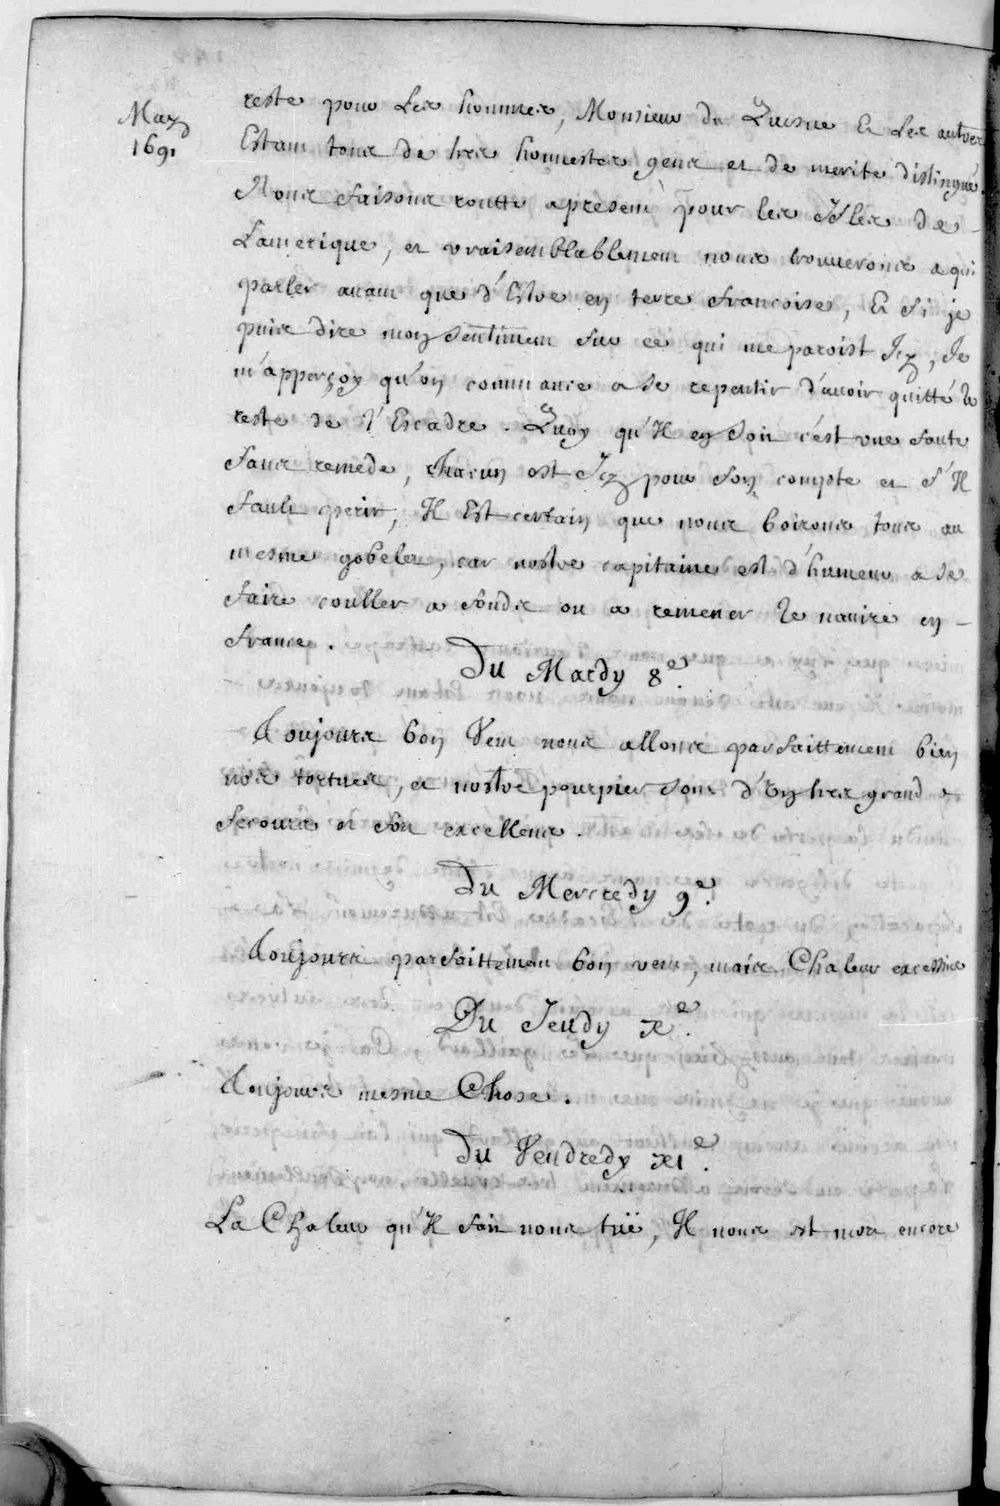 May
1691
reste pour Les hommes, Monsieur du Quesne Et Les autres
Estant tous de tres honnestes gens et de merite distingué.
Nous faisons routte apresent pour les Isles de
L'amerique, et vraisemblablement nous trouverons a qui
parler avant que d'Estre en terre francoise, Et si je
puis dire mon sentiment sur ce qui me paroist Icy, Je
m'apperçoy qu'on commance a se repentir d'avoir quitté le
reste de l'Escadre. Quoy qu'Il en soit c'est une faute
sans remede, chacun est Icy pour son compte et s'Il
fault perir, Il Est certain que nous boirons tous au
mesme gobelet, car nostre capitaine est d'humeur a se
faire couller a fonds ou a remener le navire en
france.
Du Mardy 8e.
Toujours bon Vent nous allons parfaittement bien
nos tortues, et nostre pourpier sont d'Un tres grand
secours et son excellens.
Du Mercredy 9e.
Toujours parfaittement bon vent, mais Chaleur excessive
Du Jeudy xe.
Toujours mesme Chose.
Du Vendredy xie.
La Chaleur qu'Il fait nous tuë, Il nous est mort encore